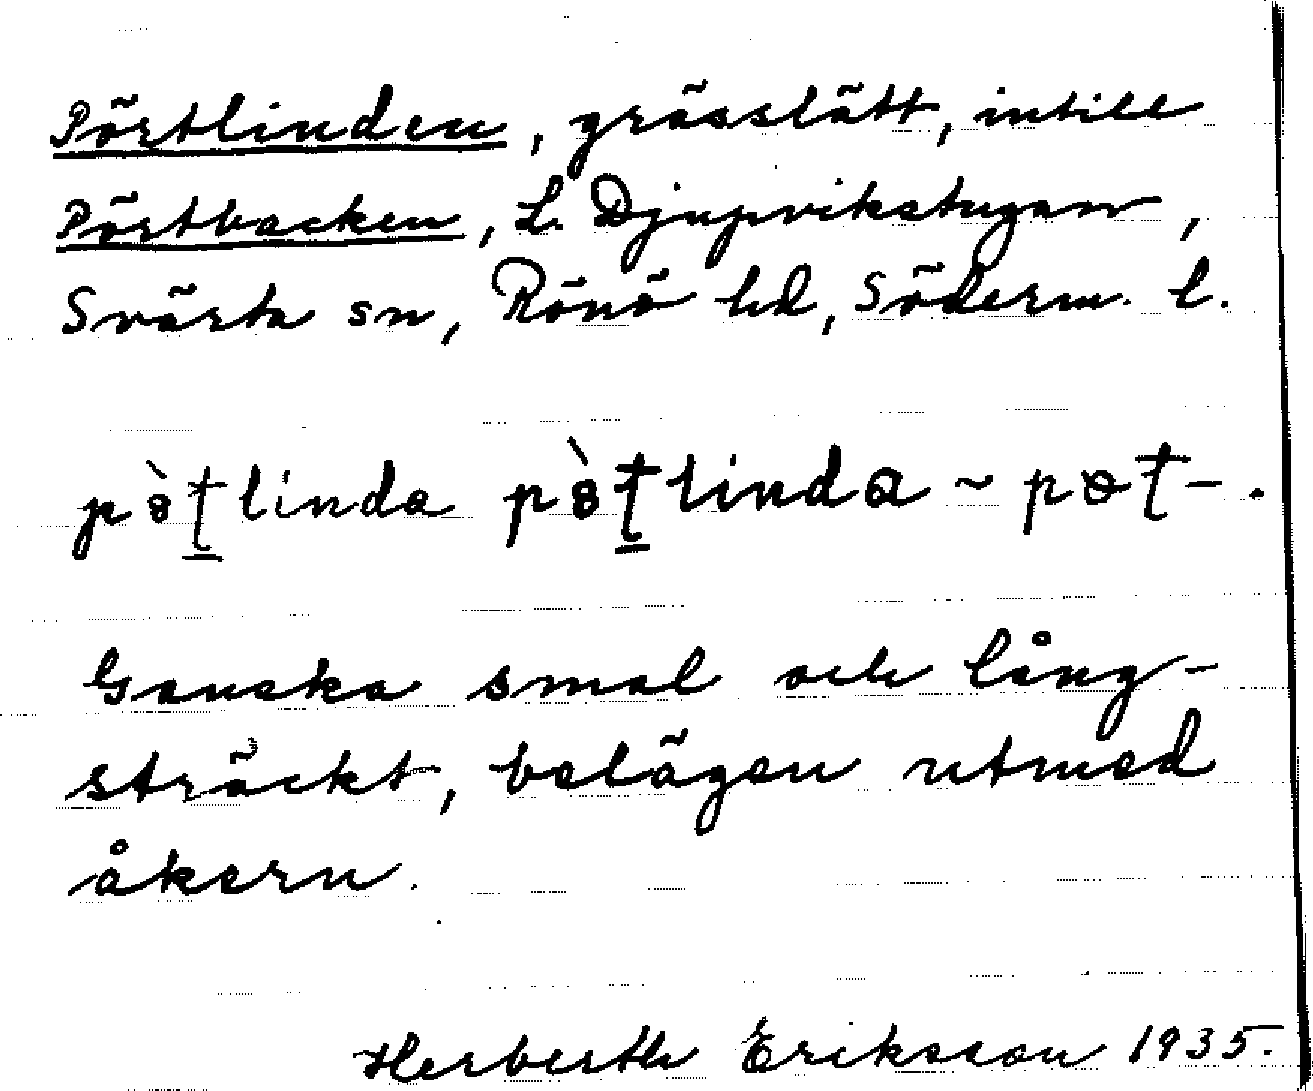 Pörtlinden, grässlätt, intill
Pörtbacken, L. Djupvikstugan,
Svärta sn, Rönö hd, Söderm. l.
linda linda ~
Ganska smal och lång-
sträckt, belägen utmed
åkern.
Herberth Eriksson 1935.